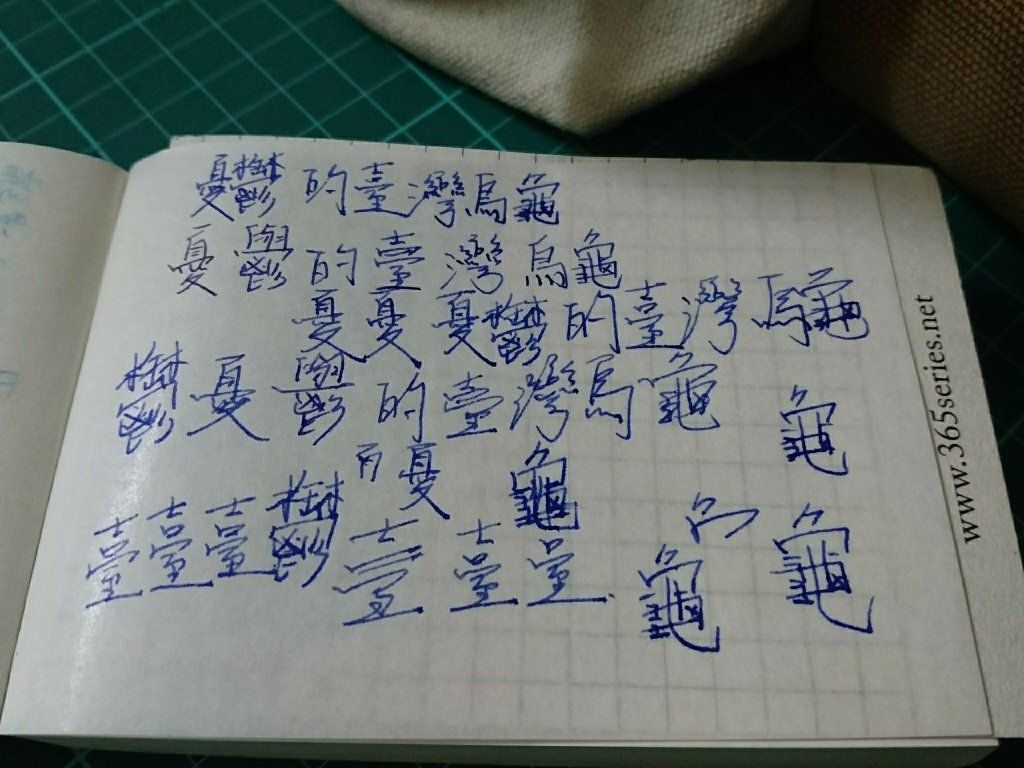 憂鬱的臺灣烏龜
憂鬱的臺灣烏龜
憂憂憂鬱的臺灣烏龜
鬱憂鬱的臺灣烏龜
龜
憂龜
臺臺臺鬱臺臺臺龜龜
www.365series.net